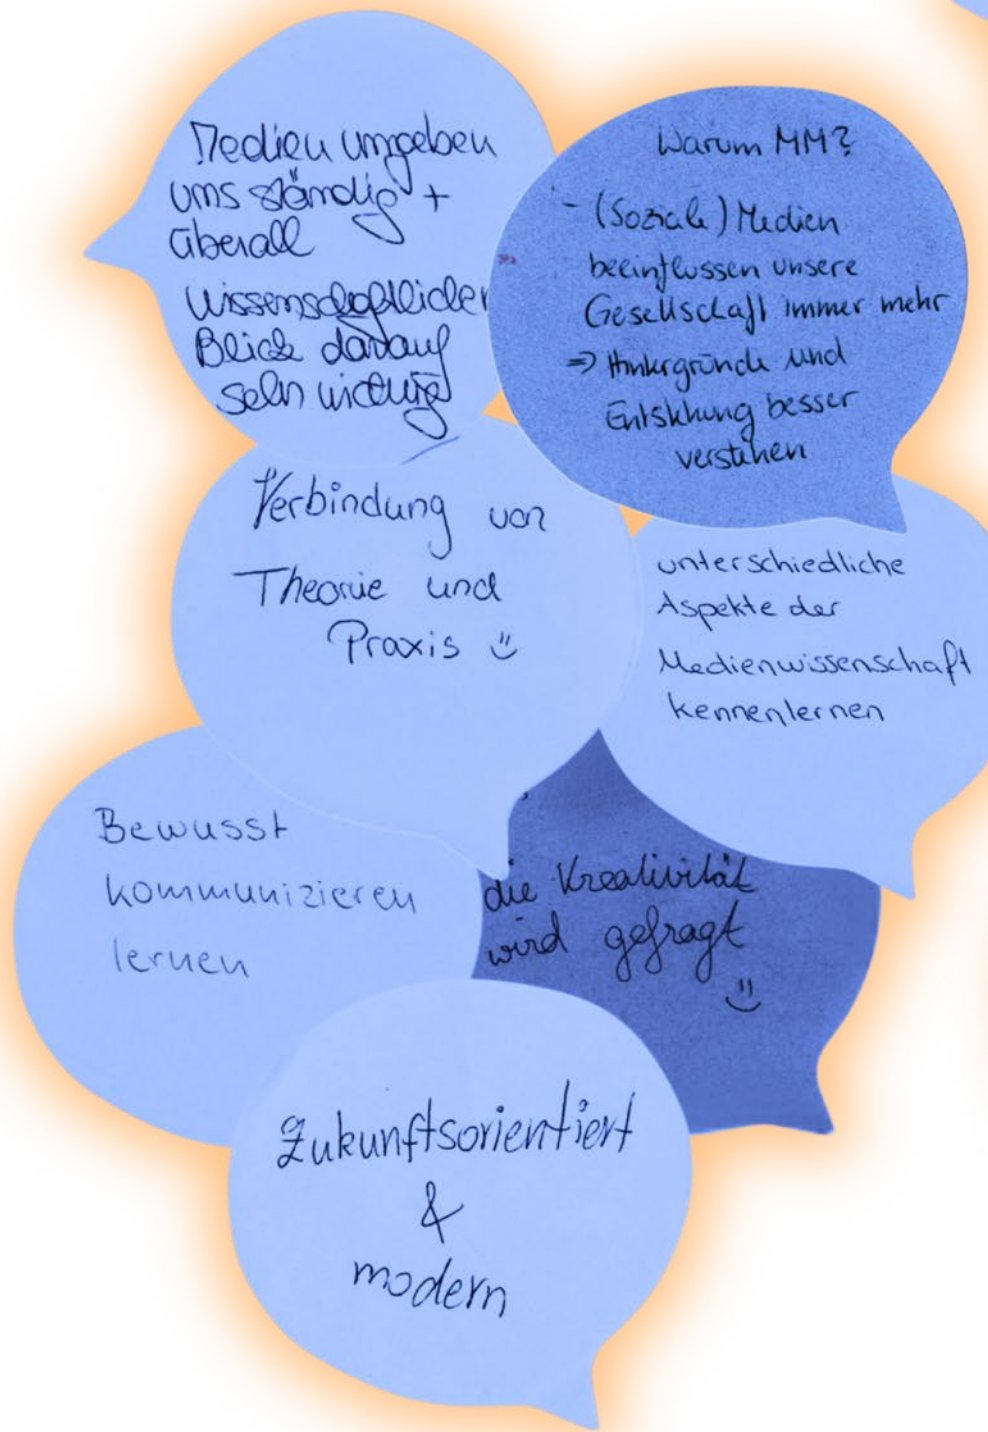 Medien umgeben
uns ständig +
überall
Wissenschaftlicher
Blick darauf
sehr wichtig
Warum MM?
- (Soziale) Medien
beeinflussen unsere
Gesellschaft immer mehr
⇒ Hintergründe und
Entstehung besser
verstehen
Verbindung von
Theorie und
Praxis :)
unterschiedliche
Aspekte der
Medienwissenschaft
kennenlernen
Bewusst
kommunizieren
lernen
die Kreativität
wird gefragt
:)
Zukunftsorientiert
&
modern